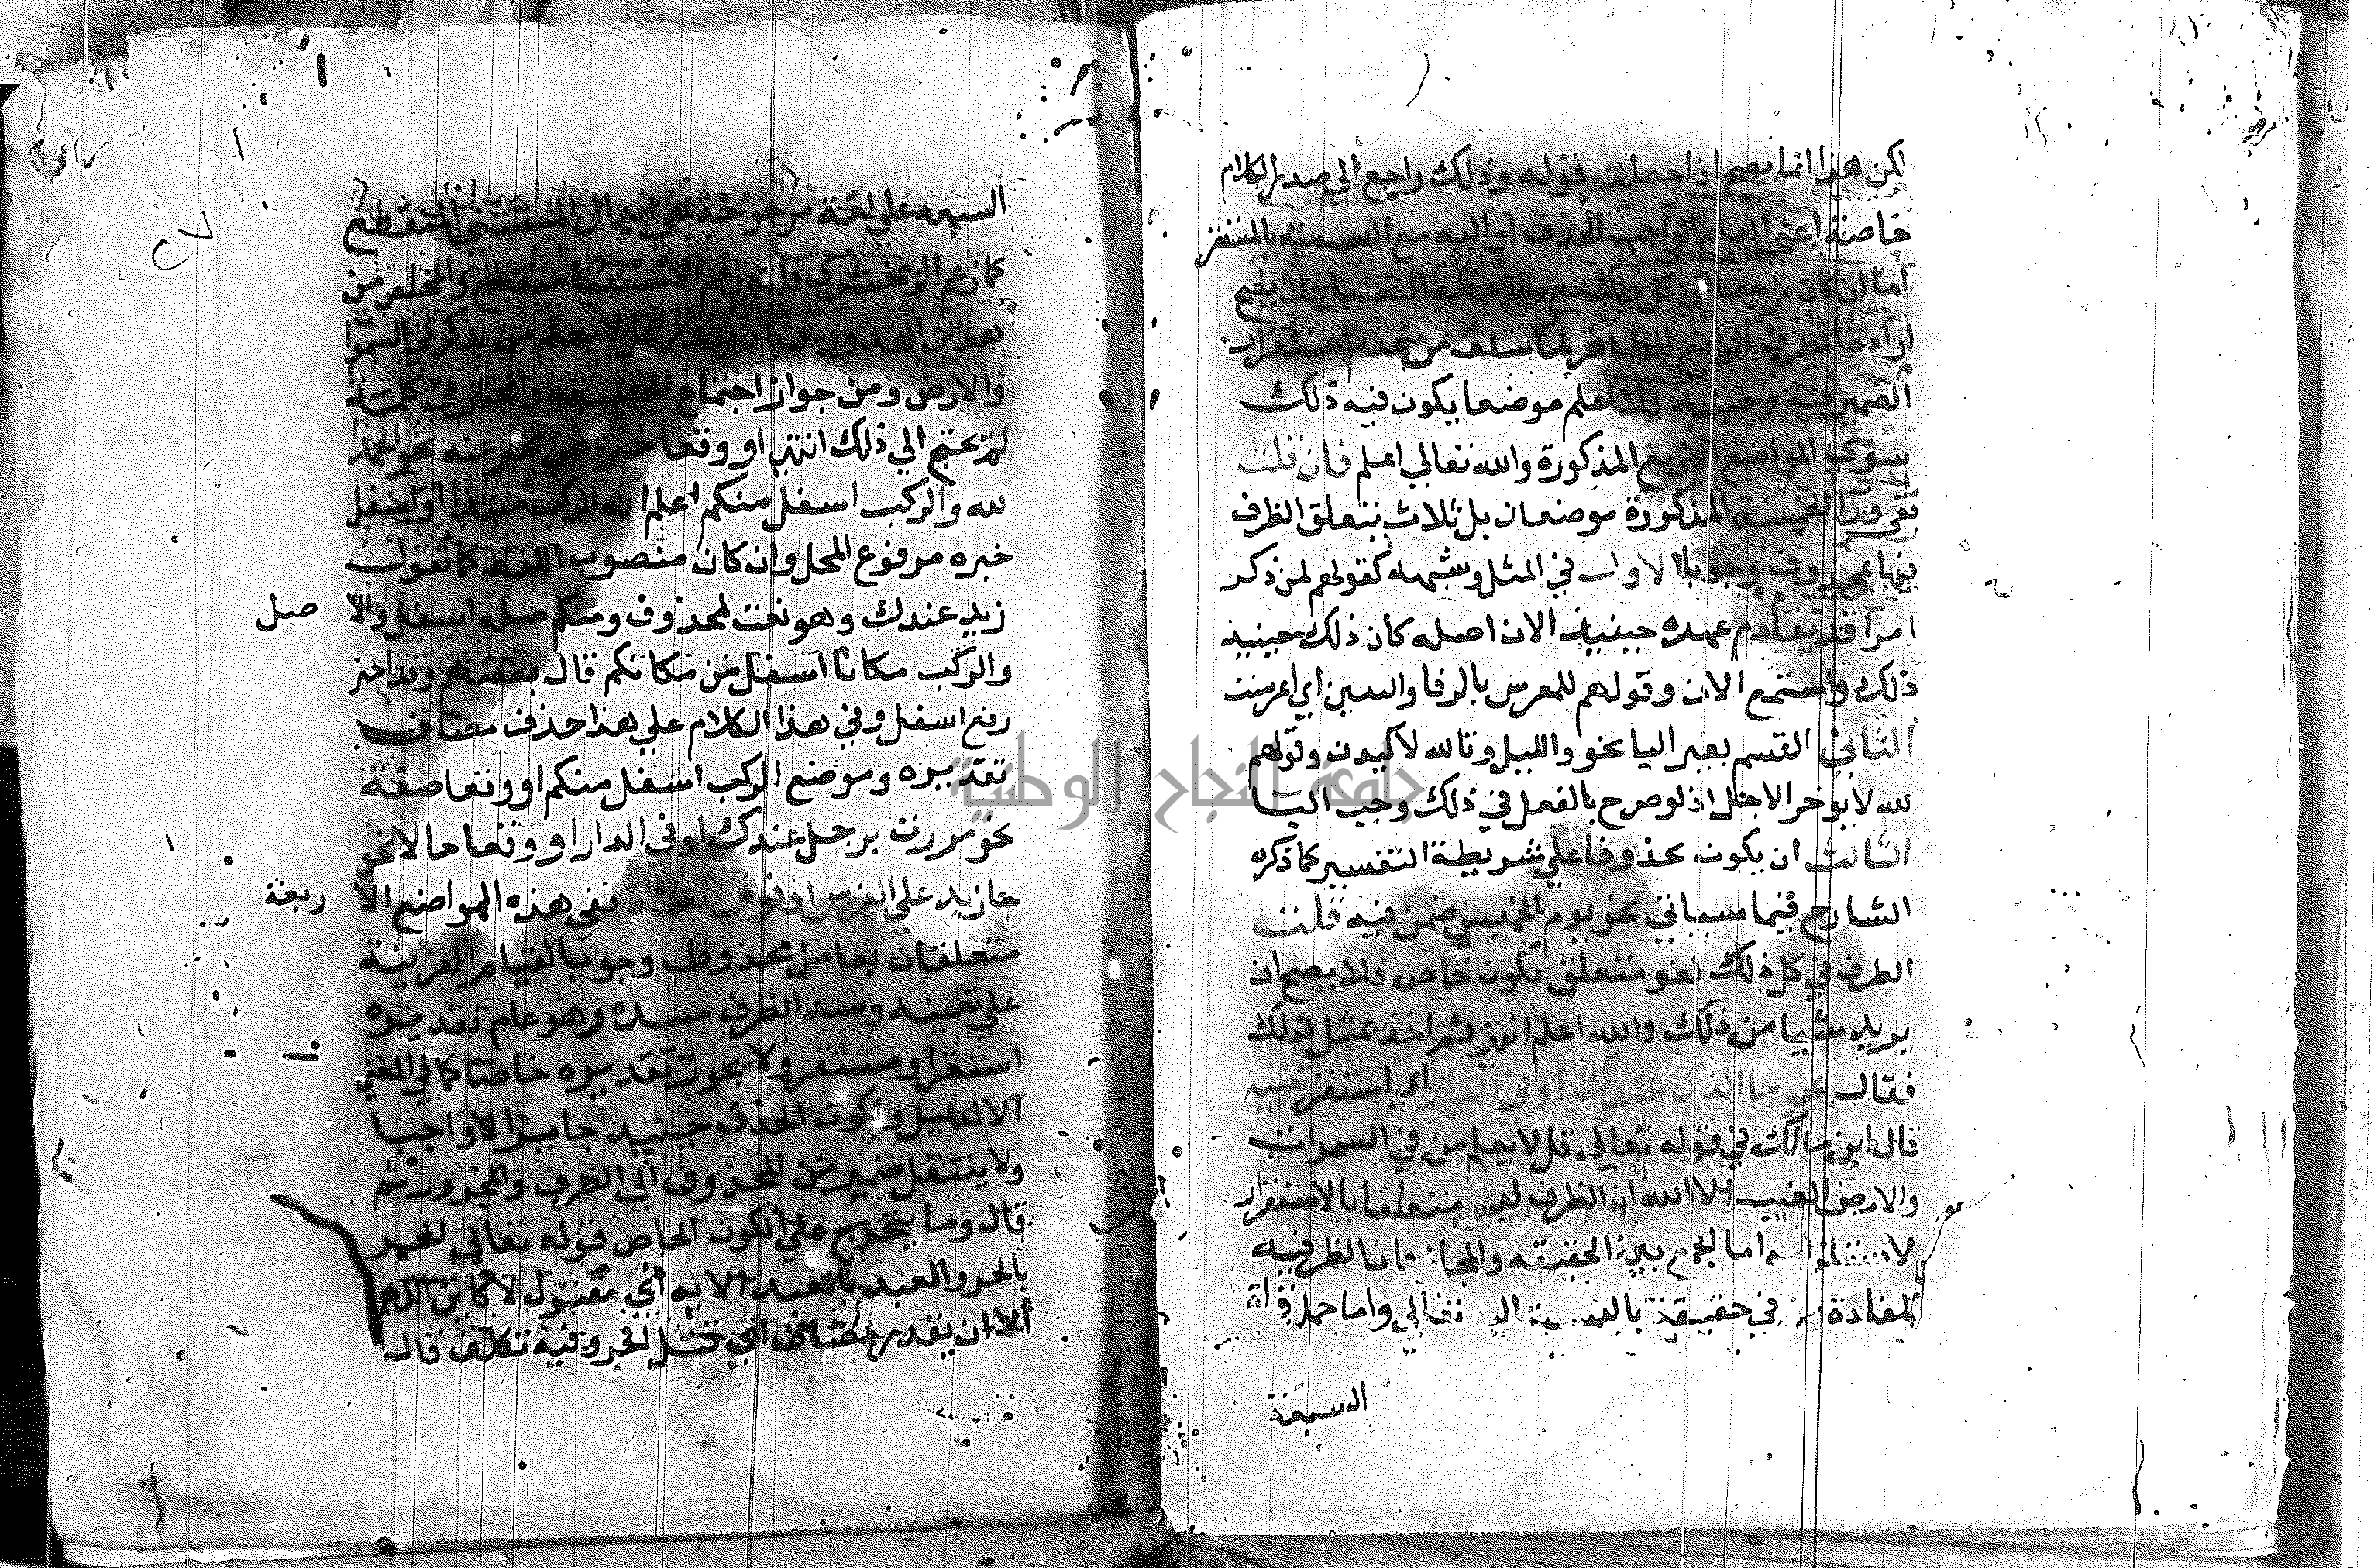 لكن هذا انما يصح اذا جعلت قوله وذلك راجع الي صدر الكلام
خاصة اعني العام الواجب الحذف او اليه مع التسمية بالمستقر
اما ان كان راجعا الي كل ذلك مع ملاحظة فلا يصح
الظرف الرافع للظاهر لما سلف من عدم استقرار
الضمير فيه وحينيذ فلا نعلم موضعا يكون فيه ذلك
سوي المواضع الاربع المذكورة والله تعالي اعلم فان قلت
بقي ورا الخمسة المذكورة موضعان بل ثلاث يتعلق الظرف
فيها بمحذوف وجوبا الاول في المثل وشبهه كقولهم لمن ذكر
امرا قد تقادم عهده حينيذ الان اصله كان ذلك حينيذ
ذلك واستمع الان وقولهم للمعرس بالرفا والبنين اي اعرست
الثاني القسم بغير البا نحو والليل وتالله لاكيدن وقولهم
لله لا يوخر الاجل اذ لو صرح بالفعل في ذلك وجب البا
الثالث ان يكون محذوفا علي شريطة التفسير كما ذكره
الشارح فيما سياتي نحو يوم الخميس صمت فيه قلت
الظرف في كل ذلك لغو متعلق بكون خاص فلا يصح ان
يريد شيا من ذلك والله اعلم انتهي ثم اخذ يمثل لذلك
فقال نحو جا الذي عندك او في الدار اي استقر حينيذ
قال ابن مالك في قوله تعالي قل لا يعلم من في السموات
والارض الغيب الا الله ان الظرف ليس متعلقا بالاستقرار
لاستلزامه اما الجمع بين الحقيقة والمجاز فان الظرفية
المفادة من في حقيقة بالنسبة الي تعالي واما حمل قراة
السبعة
السبعة علي لغة مرجوحة وهي ابدال المستثني المنقطع
كما زعم الزمخشري فانه زعم الاستثنا منقطع والمخلص من
هذين المحذورين ان يقدر قل لا يعلم من يذكر في السموا
والارض ومن جوز اجتماع الحقيقة والمجاز في كلمة
لم يحتج الي ذلك انتهي او وقعا خبر عن مخبر عنه نحو الحمد
لله والركب اسفل منكم اعلم ان الركب مبتدا واسفل
خبره مرفوع المحل وان كان منصوب اللفظ كما تقول
زيد عندك وهو نعت لمحذوف ومنكم صلة اسفل والا صل
والركب مكانا اسفل من مكانكم قال بعضهم وقد اجيز
رفع اسفل وفي هذا الكلام علي هذا حذف مضاف
تقديره وموضع الركب اسفل منكم او وقعا صفة
نحو مررت برجل عندك او في الدار او وقعا حالا نحو
جا زيد علي الفرس او فوق ففي هذه المواضع الا ربعة
متعلقان بعامل محذوف وجوبا لقيام القرينة
علي تعيينه وسد الظرف مسده وهو عام تقديره
استقر او مستقر ولا يجوز تقديره خاصا كما في المغني
الا لدليل ويكون الحذف حينيذ جايزا لا واجبا
ولا ينتقل ضمير من المحذوف الي الظرف والمجرور ثم
قال ومما يتخرج علي الكون الخاص قوله تعالي الحر
بالحر والعبد بالعبد الاية اي مقتول لا كاين اللهم
الا ان يقدر مضاف اي قتل الحر وفيه تكلف قال